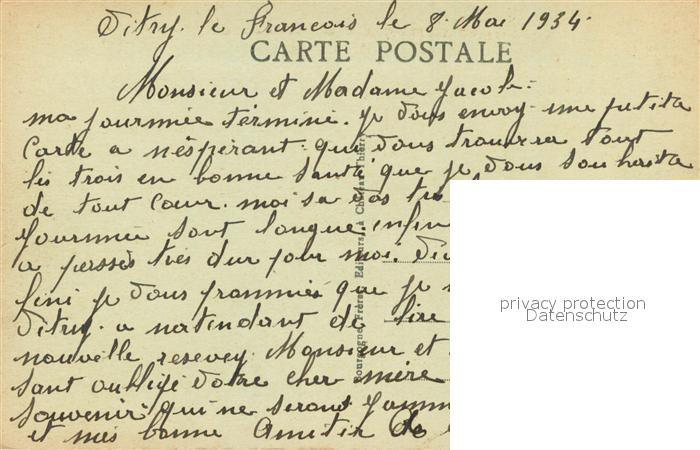 Vitry. le Francois le 8. Mai 1934.
CARTE POSTALE
Monsieur et Madame Jacob.
ma journnée términé. je vous envoy une petite
Carte a néspérant. que vous trouvera tout
lés trois en bonne santé que je vous souhaita
de tout Cœur. moi sa vas trés
journnée sont longue. enfin
a passés trés dur pour moi.
fini je vous prommiés que je
Vitry. a natendant de lire
nouvélle resevez Monsieur et
sant oubliéé votre cher mére
souvenir qui ne seront
et més bonne Amitiér de
Bourgogne Frères, Editeurs, à Château-Thierry
privacy protection
Datenschutz